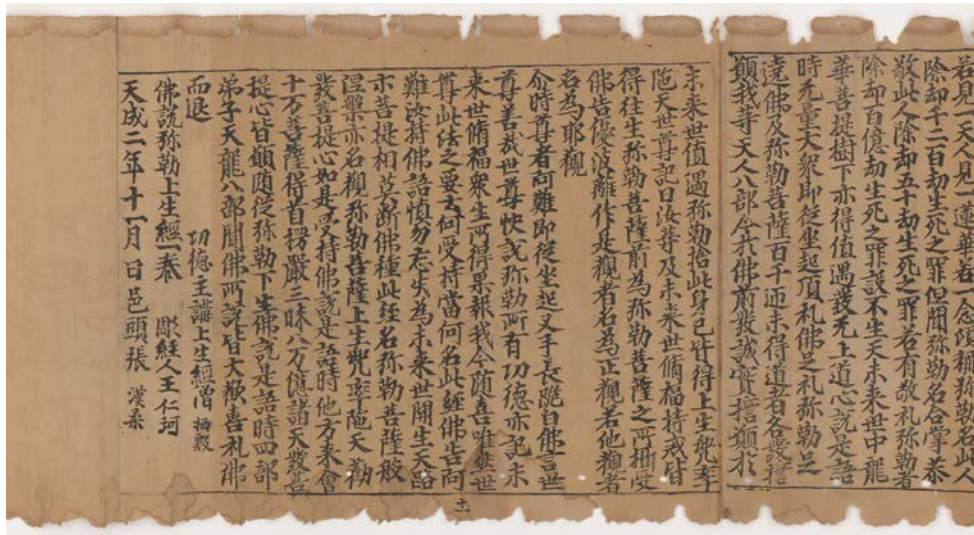 若見一天人見一蓮華若一念頃稱弥勒名此人
除却千二百劫生死之罪但聞弥勒名合掌恭
敬此人除却五十劫生死之罪若有敬礼弥勒者
除却百億劫生死之罪設不生天未来世中龍
華菩提樹下亦得值遇發无上道心說是語
時无量大衆即從坐起頂礼佛足礼弥勒足
遶佛及弥勒菩薩百千迊未得道者各發誓
願我等天人八部今於佛前發誠實誓願於
未来世值遇弥勒捨此身已皆得上生兜率
陁天世尊記曰汝等及未来世脩福持戒皆
得往生弥勒菩薩前為弥勒菩薩之所攝受
佛告優波離作是觀者名為正觀若他觀者
名為耶觀
尒時尊者阿難即從坐起叉手長跪白佛言世
尊善哉世尊快說弥勒所有功徳亦記未
来世脩福衆生所得果報我今随喜唯然世
尊此法之要云何受持當何名此經佛告阿
難汝持佛語慎勿忘失為未来世開生天路
示菩提相莫斷佛種此經名弥勒菩薩般
涅槃亦名觀弥勒菩薩上生兜率陁天勸
發菩提心如是受持佛說是語時他方来會
十万菩薩得首楞嚴三昧八万億諸天發菩
提心皆願随從弥勒下生佛說是語時四部
弟子天龍八部聞佛所說皆大歡喜礼佛
而退 功徳主講上生經僧 栖殷
佛說弥勒上生經一卷 彫經人王仁珂
天成二年十一月 日邑頭張 漢柔
十一